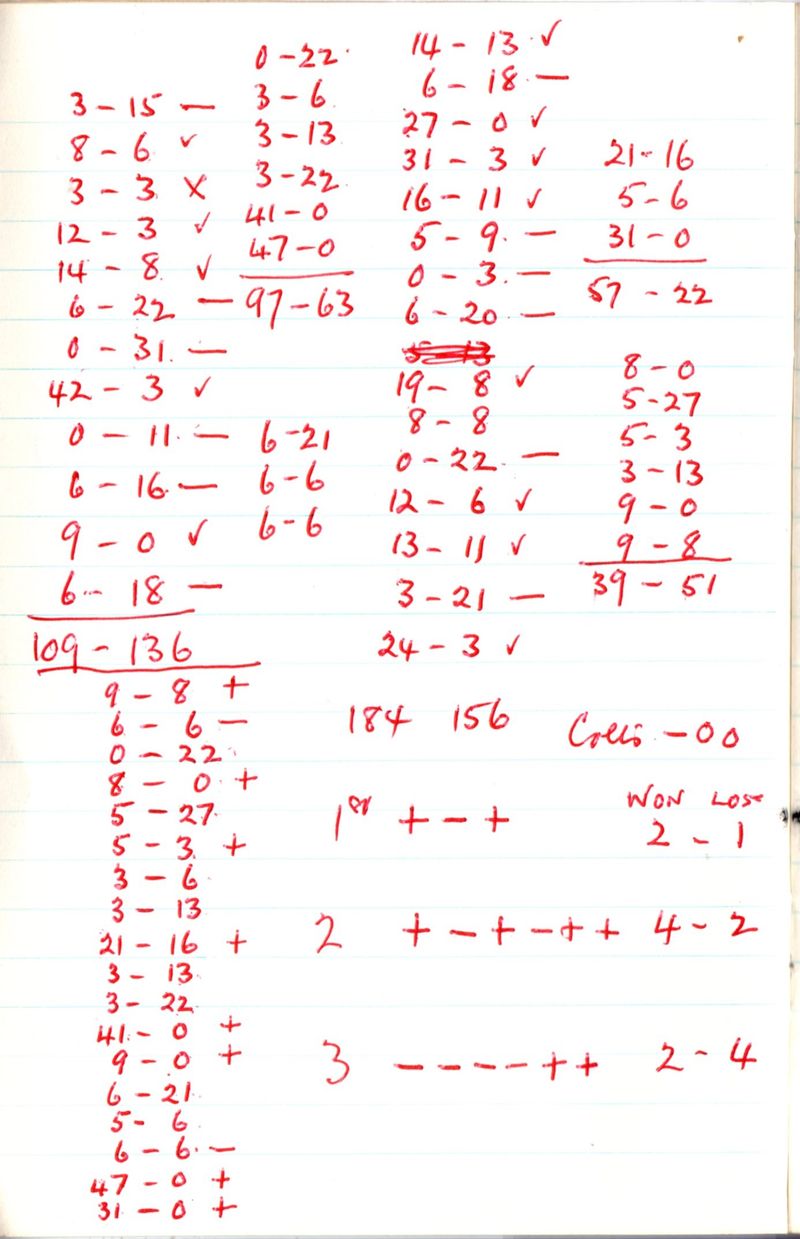 3 - 15 —
8 - 6 ✓
3 - 3 X
12 - 3 ✓
14 - 8 ✓
6 - 22 —
0 - 31 —
42 - 3 ✓
0 - 11 —
6 - 16 —
9 - 0 ✓
6 - 18 —
109 - 136
9 - 8 +
6 - 6 —
0 - 22
8 - 0 +
5 - 27
5 - 3 +
3 - 6
3 - 13
21 - 16 +
3 - 13
3 - 22
41 - 0 +
9 - 0 +
6 - 21
5 - 6
6 - 6 —
47 - 0 +
31 - 0 +
0 - 22
3 - 6
3 - 13
3 - 22
41 - 0
47 - 0
97 - 63
6 - 21
6 - 6
6 - 6
14 - 13 ✓
6 - 18 —
27 - 0 ✓
31 - 3 ✓
16 - 11 ✓
5 - 9 —
0 - 3 —
6 - 20 —
19 - 8 ✓
8 - 8
0 - 22 —
12 - 6 ✓
13 - 11 ✓
3 - 21 —
24 - 3 ✓
184 156
21 - 16
5 - 6
31 - 0
57 - 22
8 - 0
5 - 27
5 - 3
3 - 13
9 - 0
9 - 8
39 - 51
- 00
WON LOSE
1st + - + 2 - 1
2 + - + - + + 4 - 2
3 - - - - + + 2 - 4